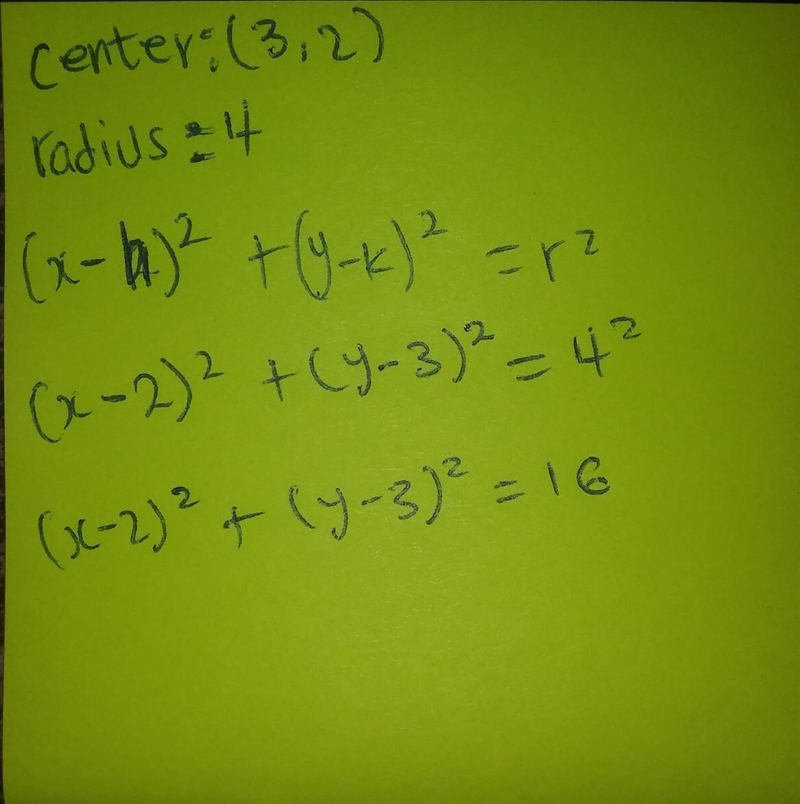 center: (3,2)
radius = 4
(x-h)² + (y-k)² = r²
(x-2)² + (y-3)² = 4²
(x-2)² + (y-3)² = 16